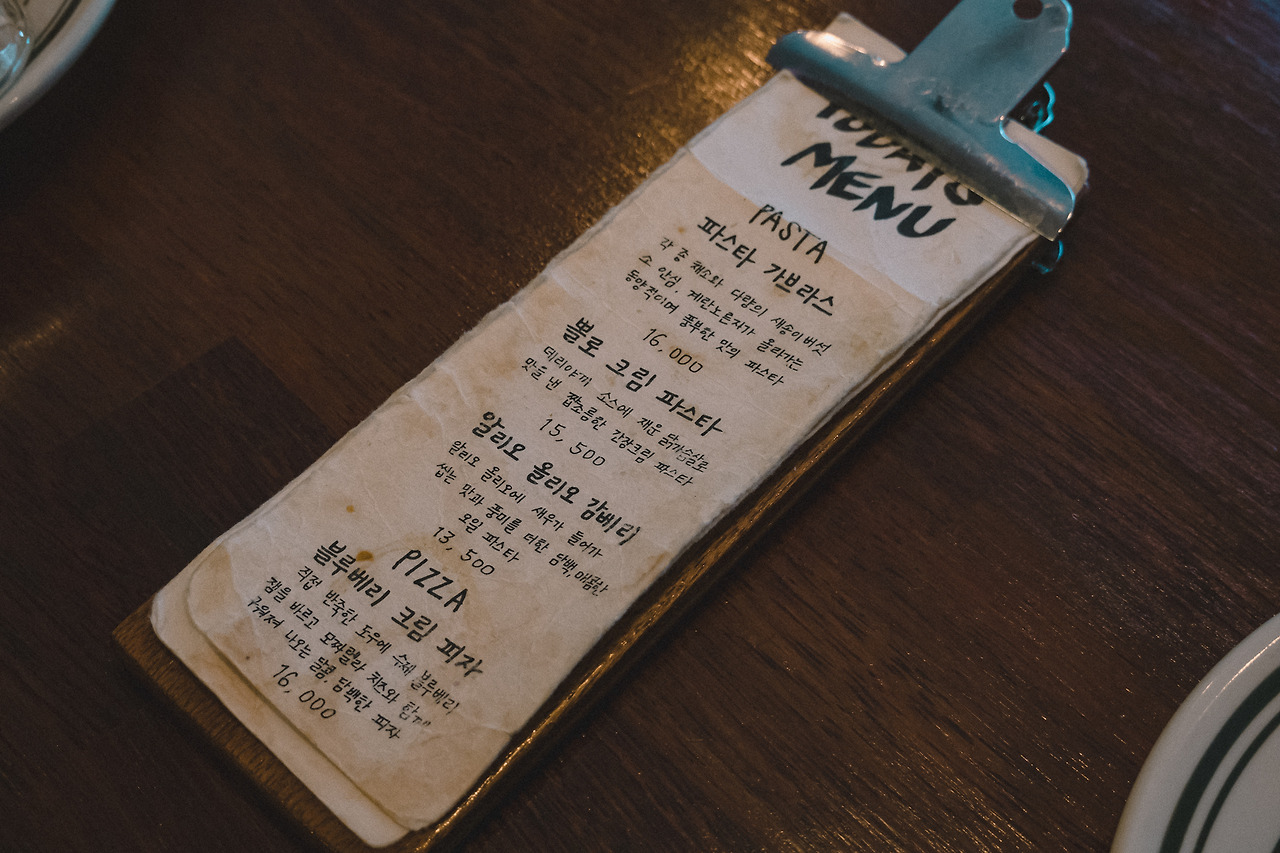 TODAYS
MENU
PASTA
파스타 가브라스
각종 채소와 다량의 새송이버섯
소 안심, 계란노른자가 올라가는
동양적이며 풍부한 맛의 파스타
16,000
뽈로 크림 파스타
데리야끼 소스에 재운 닭가슴살로
맛을 낸 짭쪼름한 간장크림 파스타
15,500
알리오 올리오 감베리
알리오 올리오에 새우가 들어가
씹는 맛과 풍미를 더한 담백, 매콤한
오일 파스타
13,500
PIZZA
블루베리 크림 피자
직접 반죽한 도우에 수제 블루베리
잼을 바르고 모짜렐라 치즈와 함께
구워져 나오는 달콤, 담백한 피자
16,000